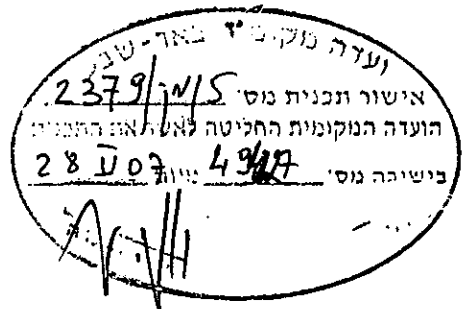 ועדה מקומית באר-שבע
אישור תכנית מס' 5/מק/2379
הועדה המקומית החליטה לאשר את התכנית
בישיבה מס' מיום 28 II 07